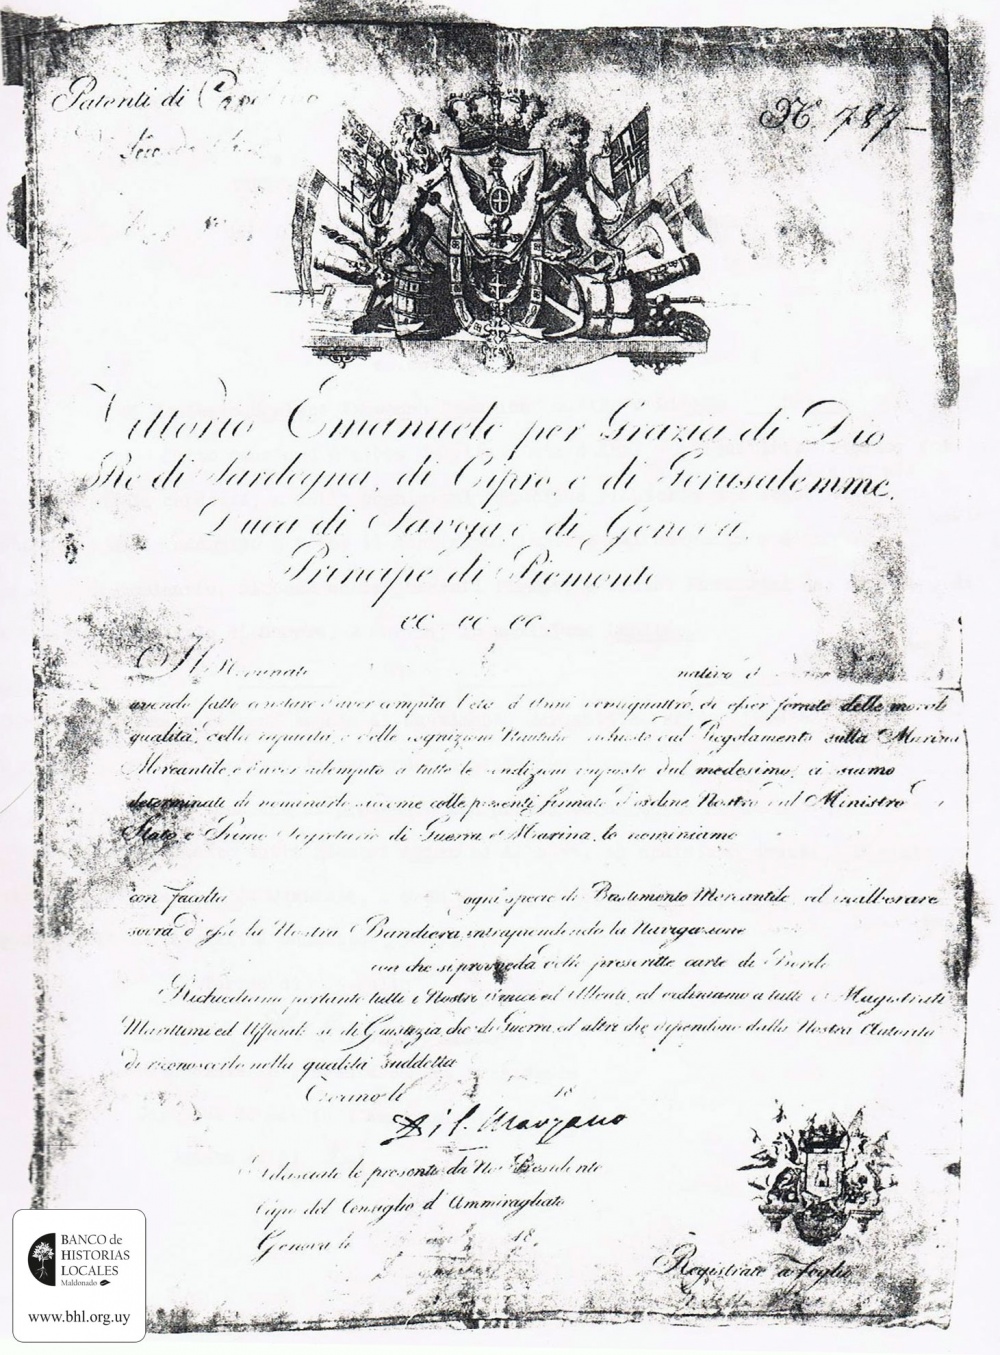 Patenti di
Nº 787
Vittorio Emanuele per Grazia di Dio
Re di Sardegna, di Cipro, e di Gerusalemme,
Duca di Savoja e di Genova,
Principe di Piemonte
ec. ec. ec.
Il Nominato nativo d
avendo fatto constare d'aver compita l'età d'Anni ventiquattro, di esser fornito delle morali
qualità, della capacità, e delle cognizioni Nautiche dal Regolamento sulla Marina
Mercantile, e d'aver adempito a tutte le condizioni imposte dal medesimo, ci siamo
determinati di nominarlo siccome colle presenti firmate d'ordine Nostro dal Ministro di
Stato e Primo Segretario di Guerra, e Marina, lo nominiamo
con facoltà ogni specie di Bastimento Mercantile, ed inalberare
sovra d'essi la Nostra Bandiera, intraprendendo la Navigazione
con che si provveda delle prescritte carte di Bordo
Richiediamo pertanto tutti i Nostri Amici ed Alleati, ed ordiniamo a tutti i Magistrati
Marittimi ed di Giustizia, che di Guerra, ed altri che dipendono dalla Nostra Autorità
di riconoscerlo nella qualità suddetta
Torino li 18
Rilasciate le presenti da Noi Presidente
Capo del Consiglio d'Ammiragliato
Genova li 18
Registrate a foglio
BANCO de
HISTORIAS
LOCALES
Maldonado
www.bhl.org.uy